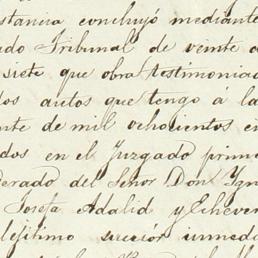 stancia concluyó mediante
ado Tribunal de veinte
siete que obra testimoniad
dos autos que tengo á la
nte de mil ochocientos
dos en el Juzgado prim
derado del Señor Don Ygn
Josefa Adalid y Echever
lejitimo sucesór inmed